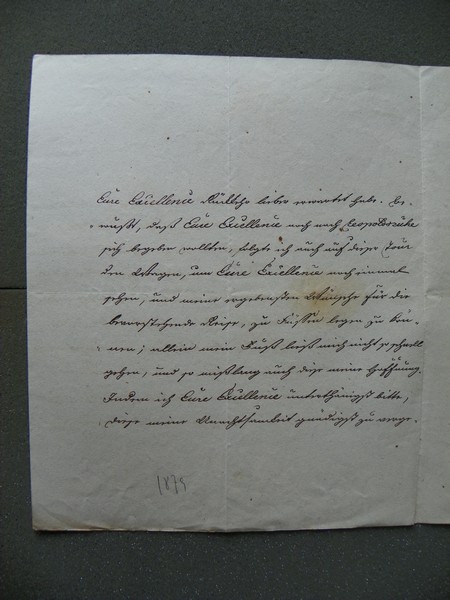 Eure Excellenz Rückkehr lieber erwartet habe. Be-
wußt, daß Eure Excellenz noch nach Leopoldsruhe
sich begeben wollten, folgte ich auch auf dieser Tour
den Wagen, um Eure Excellenz noch einmal
sehen, und meine ergebensten Wünsche für die
bevorstehende Reise, zu Füssen legen zu kön-
nen; allein mein Fuß ließ mich nicht so schnell
gehen, und so mißlang auch diese meine Hoffnung.
Indem ich Eure Excellenz unterthänigst bitte,
diese meine Unachtsamkeit gnädigst zu verge-
1875